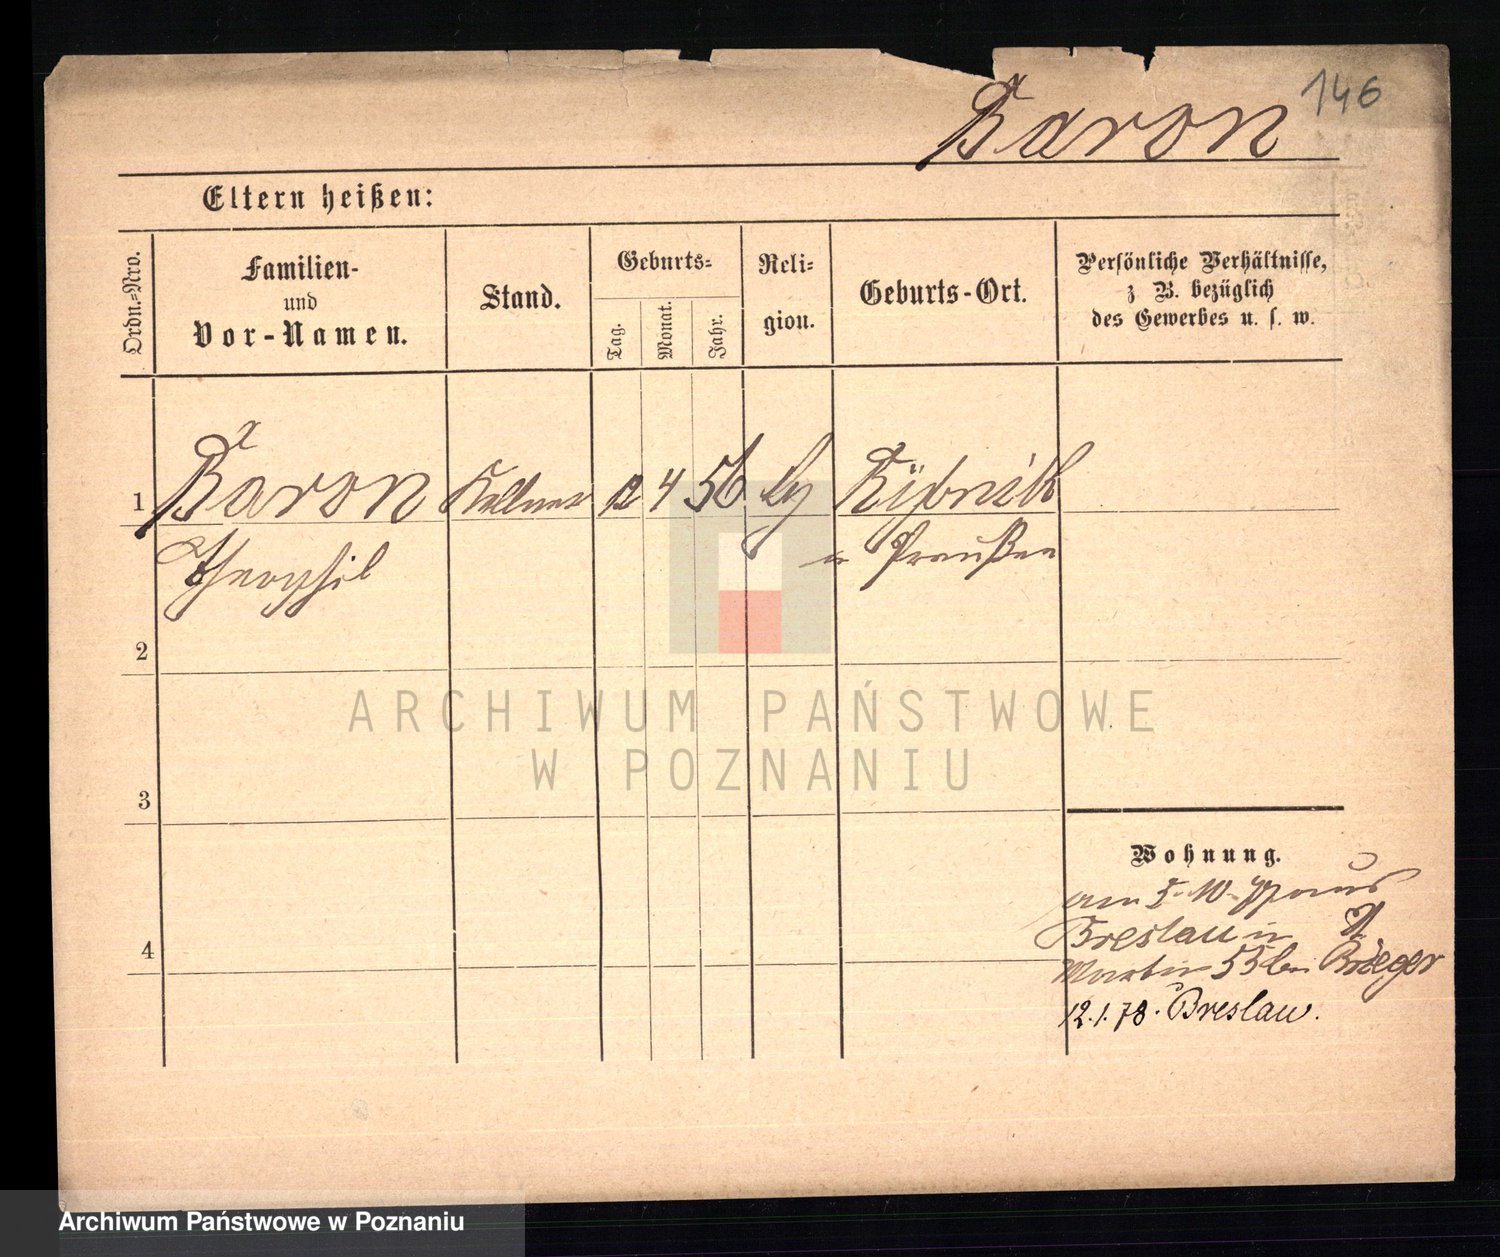 146
Baron
Eltern heißen:
Ordn.=Nro.
Familien-
und
Vor-Namen.
Stand.
Geburts=
Tag.
Monat.
Jahr.
Reli=
gion.
Geburts-Ort.
Persönliche Verhältnisse,
z B. bezüglich
des Gewerbes u. s. w.
1 Baron Kellner 12 4 56 Rÿbnik
Theophil Preußen
2
3
4
Wohnung.
am 5. 10. aus
Breslau in
Martin 55 bei Brieger
12.1.78. Breslau.
ARCHIWUM PAŃSTWOWE
W POZNANIU
Archiwum Państwowe w Poznaniu